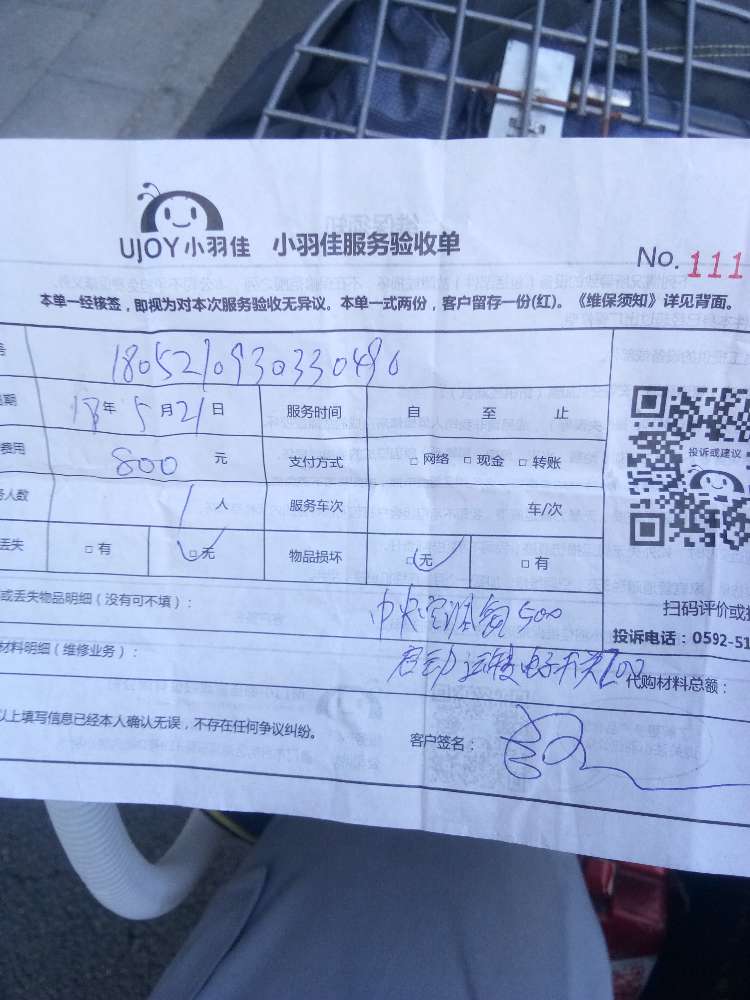 UJOY小羽佳 小羽佳服务验收单
No. 111
本单一经核签，即视为对本次服务验收无异议。本单一式两份，客户留存一份(红)。《维保须知》详见背面。
1805210930330490
期 18年5月21日 服务时间 自 至 止
费用 800 元 支付方式 □网络 □现金 □转账
人数 1 人 服务车次 车/次
丢失 □有 □无 物品损坏 □无 □有
投诉或建议
或丢失物品明细（没有可不填）：
中央空调 500
扫码评价或
投诉电话：0592-51
材料明细（维修业务）：
电子开关
代购材料总额：
以上填写信息已经本人确认无误，不存在任何争议纠纷。
客户签名：